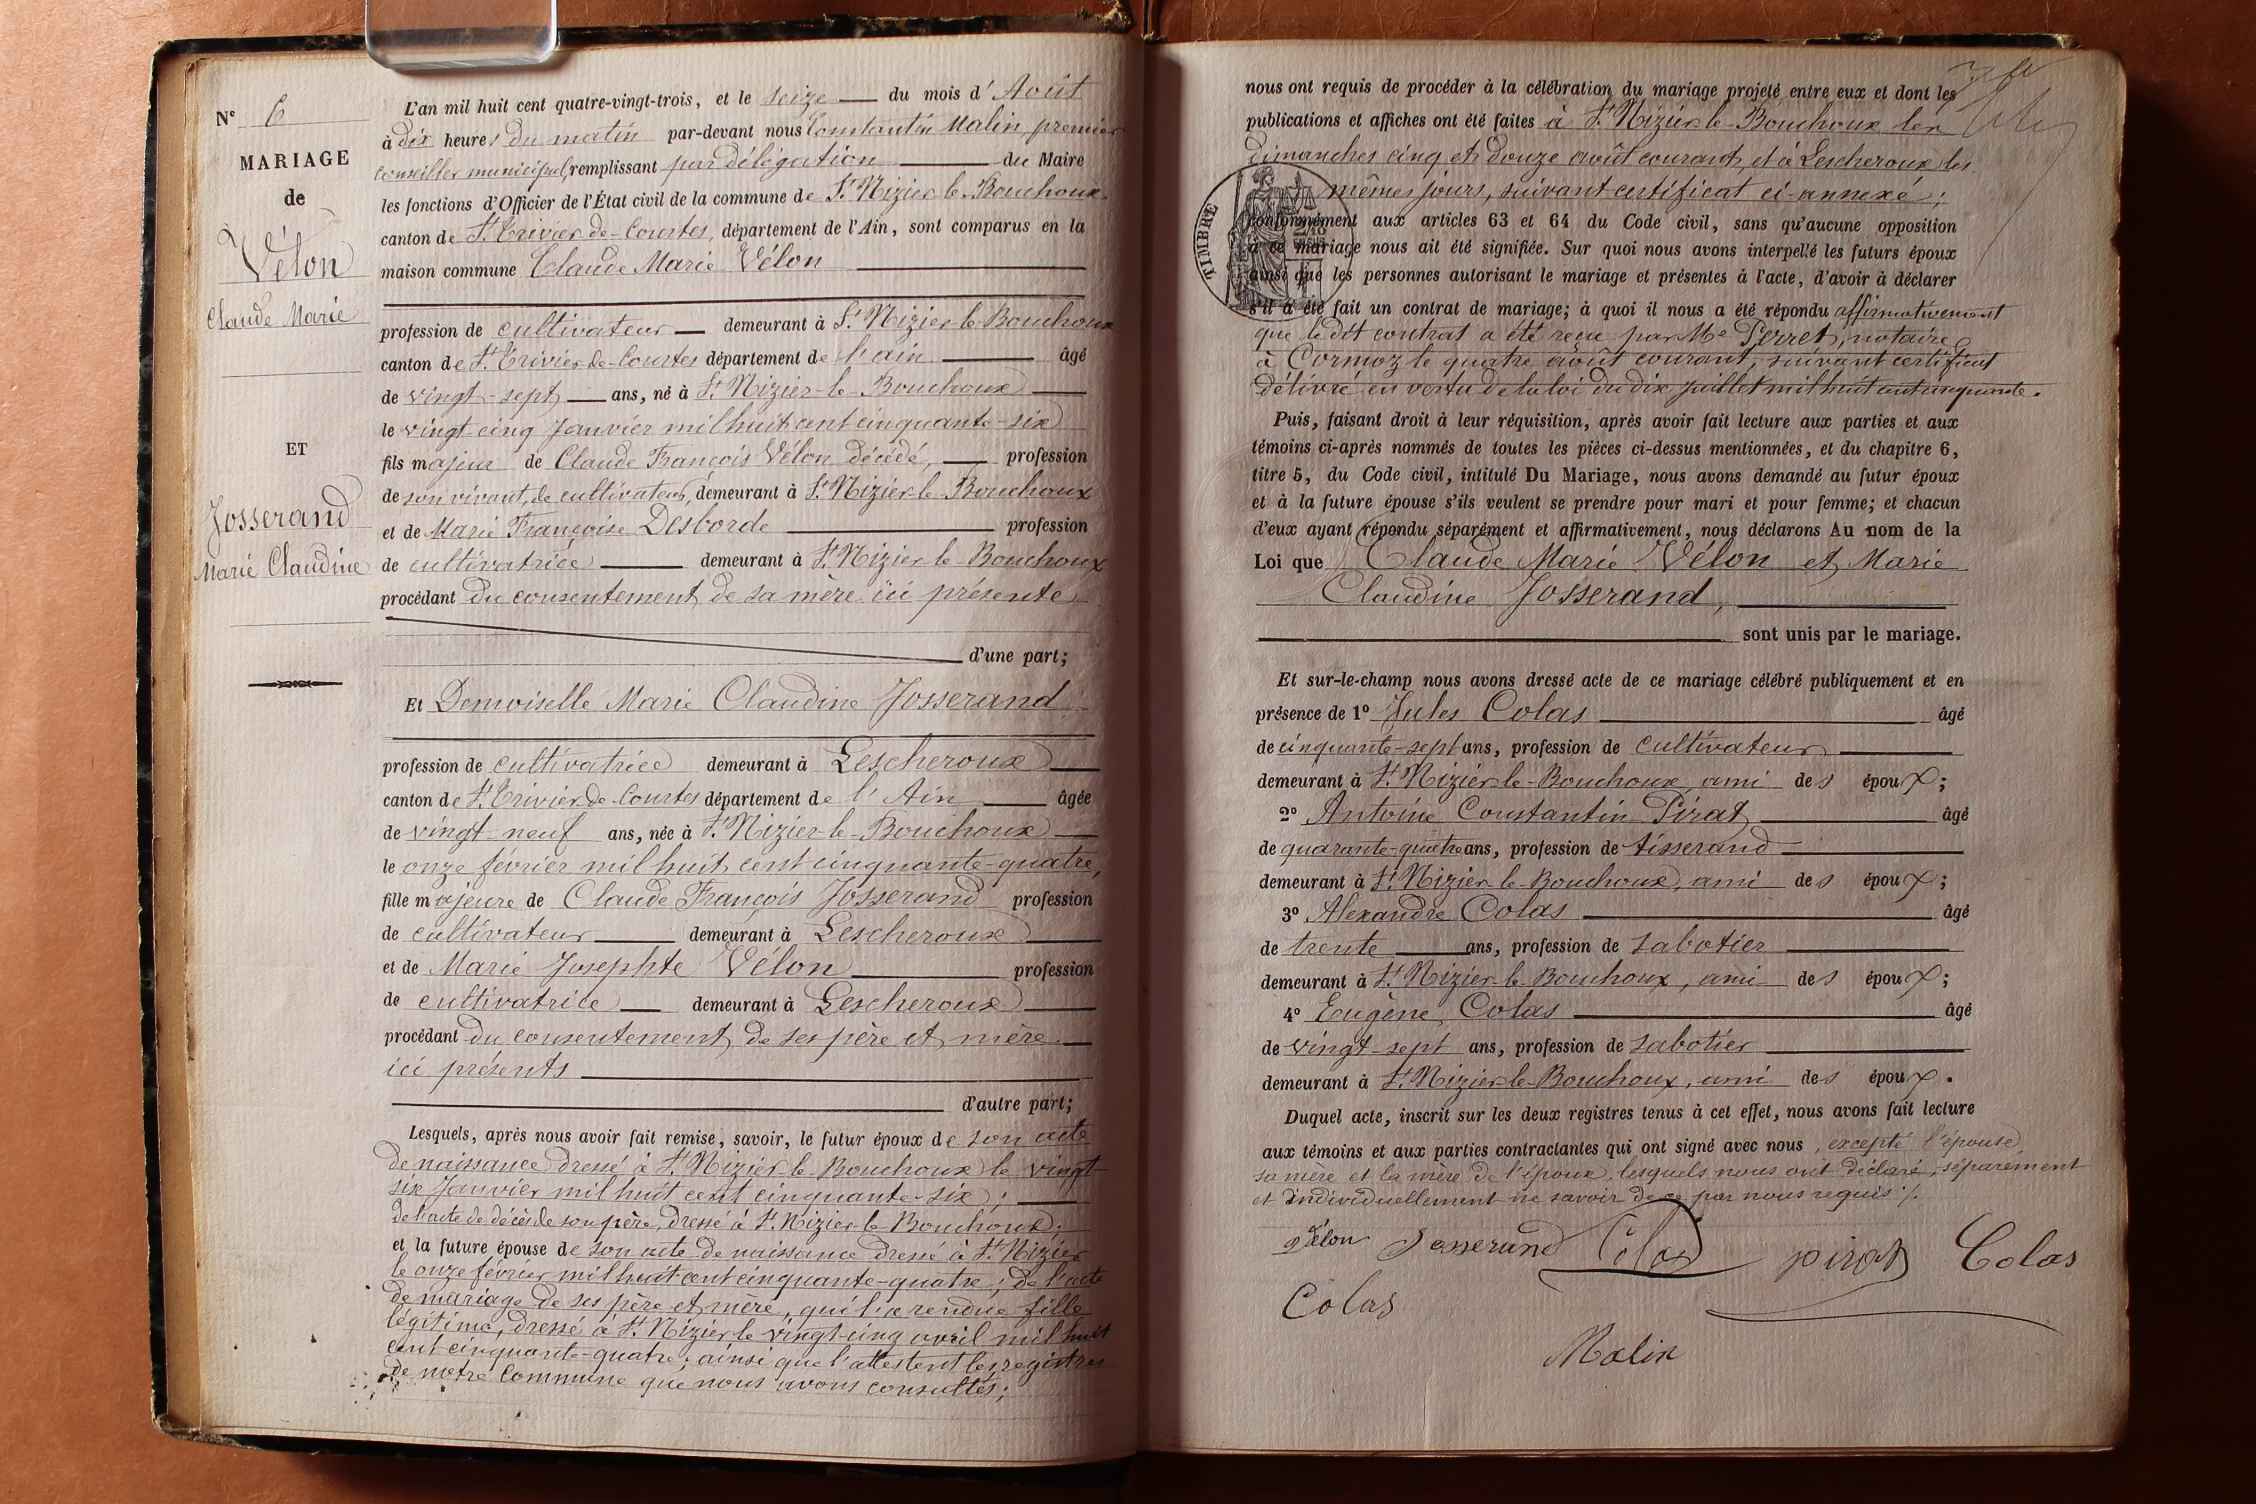 N° 6
MARIAGE
de
Vélon
Claude Marie
ET
Josserand
Marie Claudine
L'an mil huit cent quatre-vingt-trois, et le seize du mois d'Août
à dix heures du matin par-devant nous Constantin Malin, premier
conseiller municipal, remplissant par délégation du Maire
les fonctions d'Officier de l'État civil de la commune de St Nizier-le-Bouchoux.
canton de St Trivier-de-Courtes, département de l'Ain, sont comparus en la
maison commune Claude Marie Vélon
profession de cultivateur demeurant à St Nizier-le-Bouchoux
canton de St Trivier-de-Courtes département de l'ain âgé
de vingt-sept ans, né à St Nizier-le-Bouchoux
le vingt-cinq Janvier mil huit cent cinquante-six
fils majeur de Claude François Vélon décédé, profession
de son vivant, de cultivateur, demeurant à St Nizier-le-Bouchoux
et de Marie Françoise Desborde profession
de cultivatrice demeurant à St Nizier-le-Bouchoux
procédant du consentement de sa mère ici présente
d'une part;
Et Demoiselle Marie Claudine Josserand
profession de cultivatrice demeurant à Lescheroux
canton de St Trivier-de-Courtes département de l'Ain âgée
de vingt-neuf ans, née à St Nizier-le-Bouchoux
le onze février mil huit cent cinquante-quatre,
fille majeure de Claude François Josserand profession
de cultivateur demeurant à Lescheroux
et de Marie Josephte Vélon profession
de cultivatrice demeurant à Lescheroux
procédant du consentement de ses père et mère
ici présents
d'autre part;
Lesquels, après nous avoir fait remise, savoir, le futur époux de son acte
de naissance dressé à St Nizier-le-Bouchoux le vingt-
six Janvier mil huit cent cinquante-six;
de l'acte de décès de son père, dressé à St Nizier-le-Bouchoux;
et la future épouse de son acte de naissance dressé à St Nizier
le onze février mil huit cent cinquante-quatre; de l'acte
de mariage de ses père et mère, qui l'a rendue fille
légitime, dressé à St Nizier le vingt-cinq avril mil huit
cent cinquante-quatre; ainsi que l'attestent les registres
de notre commune que nous avons consultés;
nous ont requis de procéder à la célébration du mariage projeté entre eux et dont les
publications et affiches ont été faites à St Nizier-le-Bouchoux les
dimanches cinq et douze août courant, et à Lescheroux les
mêmes jours, suivant certificat ci-annexé;
TIMBRE
conformément aux articles 63 et 64 du Code civil, sans qu'aucune opposition
à ce mariage nous ait été signifiée. Sur quoi nous avons interpellé les futurs époux
ainsi que les personnes autorisant le mariage et présentes à l'acte, d'avoir à déclarer
s'il a été fait un contrat de mariage; à quoi il nous a été répondu affirmativement
que le dit contrat a été reçu par Me Perret, notaire
à Cormoz le quatre août courant, suivant certificat
délivré en vertu de la loi du dix Juillet mil huit cent cinquante.
Puis, faisant droit à leur réquisition, après avoir fait lecture aux parties et aux
témoins ci-après nommés de toutes les pièces ci-dessus mentionnées, et du chapitre 6,
titre 5, du Code civil, intitulé Du Mariage, nous avons demandé au futur époux
et à la future épouse s'ils veulent se prendre pour mari et pour femme; et chacun
d'eux ayant répondu séparément et affirmativement, nous déclarons Au nom de la
Loi que Claude Marie Vélon et Marie
Claudine Josserand,
sont unis par le mariage.
Et sur-le-champ nous avons dressé acte de ce mariage célébré publiquement et en
présence de 1° Jules Colas âgé
de cinquante-sept ans, profession de cultivateur
demeurant à St Nizier-le-Bouchoux ami des époux;
2° Antoine Constantin Pirat âgé
de quarante-quatre ans, profession de tisserand
demeurant à St Nizier-le-Bouchoux, ami des époux;
3° Alexandre Colas âgé
de trente ans, profession de sabotier
demeurant à St Nizier-le-Bouchoux, ami des époux;
4° Eugène Colas âgé
de vingt-sept ans, profession de sabotier
demeurant à St Nizier-le-Bouchoux, ami des époux.
Duquel acte, inscrit sur les deux registres tenus à cet effet, nous avons fait lecture
aux témoins et aux parties contractantes qui ont signé avec nous, excepté l'épouse,
sa mère et la mère de l'époux, lesquels nous ont déclaré, séparément
et individuellement ne savoir de ce par nous requis ./.
Vélon Josserand Colas pirat Colas
Colas
Malin